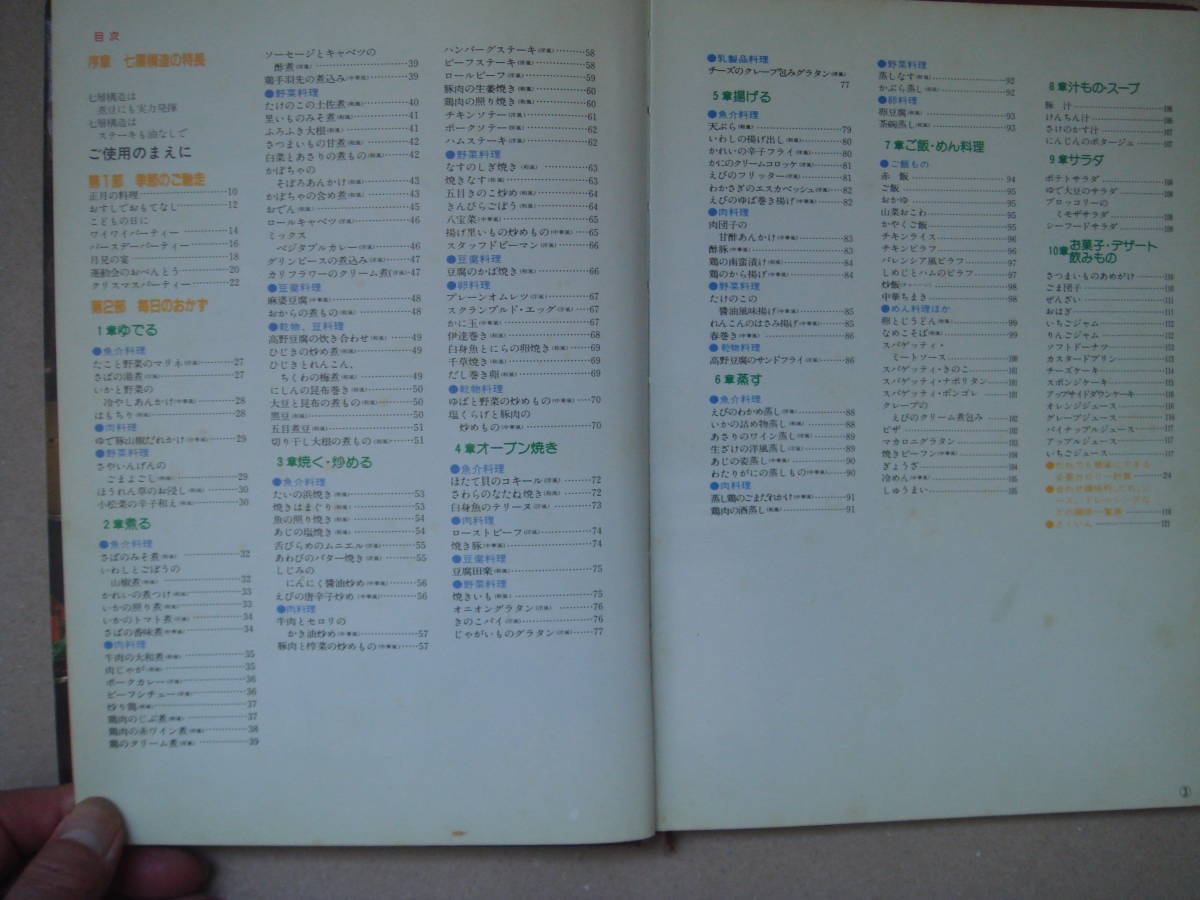 目次
序章 七層構造の特長
七層構造は
煮豆にも実力発揮
七層構造は
ステーキも油なしで
ご使用のまえに
第1部 季節のご馳走
正月の料理 10
おすしでおもてなし 12
こどもの日に
ワイワイパーティー 14
バースデーパーティー 16
月見の宴 18
運動会のおべんとう 20
クリスマスパーティー 22
第2部 毎日のおかず
1章ゆでる
●魚介料理
たこと野菜のマリネ(洋風) 27
さばの湯煮(和風) 27
いかと野菜の
冷やしあんかけ(中華風) 28
はもちり(和風) 28
●肉料理
ゆで豚山椒だれかけ(中華風) 29
●野菜料理
さやいんげんの
ごまよごし(和風) 29
ほうれん草のお浸し(和風) 30
小松菜の辛子和え(和風) 30
2章煮る
●魚介料理
さばのみそ煮(和風) 32
いわしとごぼうの
山椒煮(和風) 32
かれいの煮つけ(和風) 33
いかの照り煮(和風) 33
いかのトマト煮(洋風) 34
さばの香味煮(中華風) 34
●肉料理
牛肉の大和煮(和風) 35
肉じゃが(和風) 35
ポークカレー(洋風) 36
ビーフシチュー(洋風) 36
炒り鶏(和風) 37
鶏肉のじぶ煮(和風) 37
鶏肉の赤ワイン煮(洋風) 38
鶏のクリーム煮(洋風) 39
ソーセージとキャベツの
酢煮(洋風) 39
鶏手羽先の煮込み(中華風) 39
●野菜料理
たけのこの土佐煮(和風) 40
里いものみそ煮(和風) 41
ふろふき大根(和風) 41
さつまいもの甘煮(和風) 42
白菜とあさりの煮もの(和風) 42
かぼちゃの
そぼろあんかけ(和風) 43
かぼちゃの含め煮(和風) 43
おでん(和風) 45
ロールキャベツ(洋風) 46
ミックス
ベジタブルカレー(洋風) 46
グリンピースの煮込み(洋風) 47
カリフラワーのクリーム煮(洋風) 47
●豆腐料理
麻婆豆腐(中華風) 48
おからの煮もの(和風) 48
●乾物、豆料理
高野豆腐の炊き合わせ(和風) 49
ひじきの炒め煮(和風) 49
ひじきとれんこん、
ちくわの梅煮(和風) 49
にしんの昆布巻き(和風) 50
大豆と昆布の煮もの(和風) 50
黒豆(和風) 50
五目煮豆(和風) 51
切り干し大根の煮もの(和風) 51
3章焼く・炒める
●魚介料理
たいの浜焼き(和風) 53
焼きはまぐり(和風) 53
魚の照り焼き(和風) 54
あじの塩焼き(和風) 54
舌びらめのムニエル(洋風) 55
あわびのバター焼き(洋風) 55
しじみの
にんにく醬油炒め(中華風) 56
えびの唐辛子炒め(中華風) 56
●肉料理
牛肉とセロリの
かき油炒め(中華風) 57
豚肉と榨菜の炒めもの(中華風) 57
ハンバーグステーキ(洋風) 58
ビーフステーキ(洋風) 58
ロールビーフ(洋風) 59
豚肉の生姜焼き(和風) 60
鶏肉の照り焼き(和風) 60
チキンソテー(洋風) 61
ポークソテー(洋風) 62
ハムステーキ(洋風) 62
●野菜料理
なすのしぎ焼き(和風) 63
焼きなす(和風) 63
五目きのこ炒め(和風) 64
きんぴらごぼう(和風) 64
八宝菜(中華風) 65
揚げ里いもの炒めもの(中華風) 65
スタッフドピーマン(洋風) 66
●豆腐料理
豆腐のかば焼き(和風) 66
●卵料理
プレーンオムレツ(洋風) 67
スクランブルド・エッグ(洋風) 67
かに玉(中華風) 67
伊達巻き(和風) 68
白身魚とにらの卵焼き(和風) 69
千草焼き(和風) 69
だし巻き卵(和風) 69
●乾物料理
ゆばと野菜の炒めもの(中華風) 70
塩くらげと豚肉の
炒めもの(中華風) 70
4章オーブン焼き
●魚介料理
ほたて貝のコキール(洋風) 72
さわらのなたね焼き(和風) 72
白身魚のテリーヌ(洋風) 73
●肉料理
ローストビーフ(洋風) 74
焼き豚(中華風) 74
●豆腐料理
豆腐田楽(和風) 75
●野菜料理
焼きいも(和風) 75
オニオングラタン(洋風) 76
きのこパイ(洋風) 76
じゃがいものグラタン(洋風) 77
●乳製品料理
チーズのクレープ包みグラタン(洋風)
77
5章揚げる
●魚介料理
天ぷら(和風) 79
いわしの揚げ出し(和風) 80
かれいの辛子フライ(洋風) 80
かにのクリームコロッケ(洋風) 81
えびのフリッター(洋風) 81
わかさぎのエスカベッシュ(洋風) 82
えびのゆば巻き揚げ(中華風) 82
●肉料理
肉団子の
甘酢あんかけ(中華風) 83
酢豚(中華風) 83
鶏の南蛮漬け(和風) 84
鶏のから揚げ(中華風) 84
●野菜料理
たけのこの
醬油風味揚げ(中華風) 85
れんこんのはさみ揚げ(中華風) 85
春巻き(中華風) 86
●乾物料理
高野豆腐のサンドフライ(洋風) 86
6章蒸す
●魚介料理
えびのわかめ蒸し(和風) 88
いかの詰め物蒸し(和風) 88
あさりのワイン蒸し(洋風) 89
生ざけの洋風蒸し(洋風) 89
あじの姿蒸し(中華風) 90
わたりがにの蒸しもの(中華風) 90
●肉料理
蒸し鶏のごまだれかけ(中華風) 91
鶏肉の酒蒸し(和風) 91
●野菜料理
蒸しなす(和風) 92
かぶら蒸し(和風) 92
●卵料理
卵豆腐(和風) 93
茶碗蒸し(和風) 93
7章ご飯・めん料理
●ご飯もの
赤飯 94
ご飯 95
おかゆ 95
山菜おこわ 95
かやくご飯 95
チキンライス 96
チキンピラフ 96
バレンシア風ピラフ 97
しめじとハムのピラフ 97
炒飯 98
中華ちまき 98
●めん料理ほか
卵とじうどん(和風) 99
なめこそば(和風) 99
スパゲッティ・
ミートソース 100
スパゲッティ・きのこ 101
スパゲッティ・ナポリタン 101
スパゲッティ・ボンゴレ 101
クレープの
えびのクリーム煮包み 102
ピザ 102
マカロニグラタン 103
焼きビーフン(中華風) 104
ぎょうざ 104
冷めん(中華風) 105
しゅうまい 105
8章汁もの・スープ
豚汁 106
けんちん汁 106
さけのかす汁 107
にんじんのポタージュ 107
9章サラダ
ポテトサラダ 108
ゆで大豆のサラダ 108
ブロッコリーの
ミモザサラダ 109
シーフードサラダ 109
10章お菓子・デザート
飲みもの
さつまいものあめがけ 110
ごま団子 110
ぜんざい 111
おはぎ 111
いちごジャム 112
りんごジャム 112
ソフトドーナツ 113
カスタードプリン 113
チーズケーキ 114
スポンジケーキ 115
アップサイドダウンケーキ 116
オレンジジュース 116
グレープジュース 116
パイナップルジュース 117
アップルジュース 117
いちごジュース 117
●だれでも簡単にできる
必要カロリー計算 24
●合わせ調味料、たれ、ソ
ース、ドレッシングな
どの調味一覧表 118
●さくいん 121
①